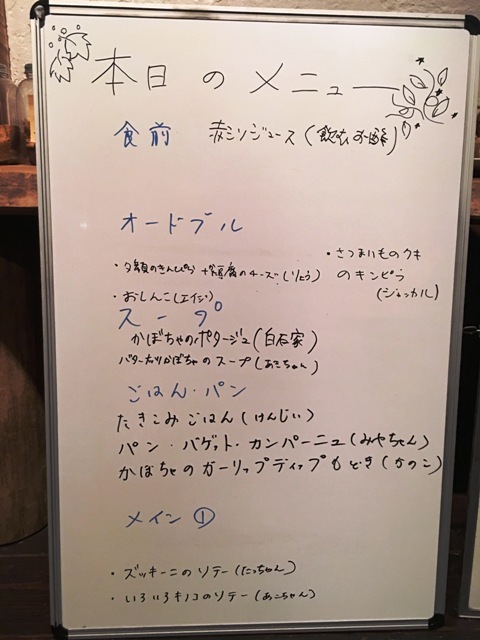 本日のメニュー
食前 赤シソジュース(飲む
オードブル
・夕顔のきんぴら 豆腐のチーズ(りょう)
・さつまいものクキ
のキンピラ
(ジャッカル)
・おしんこ(エイジ)
スープ
かぼちゃのポタージュ(白石家)
バターナッツかぼちゃのスープ(あこちゃん)
ごはん・パン
たきこみごはん(けんじい)
パン・バゲット・カンパーニュ(みやちゃん)
かぼちゃのガーリックディップもどき(かのこ)
メイン①
・ズッキーニのソテー(たっちゃん)
・いろいろキノコのソテー(あこちゃん)